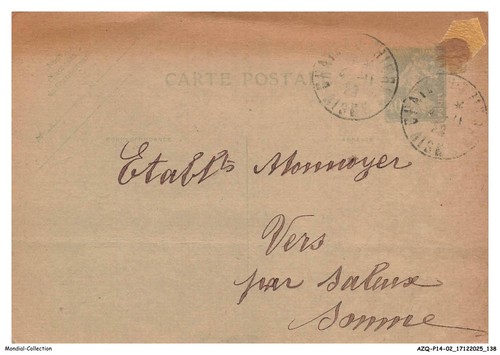 CARTE POSTALE
AISNE
AISNE
Etabl^ts Monnoyer
Vers
par Saleux
Somme
Mondial-Collection
AZQ-P14-02_17122025_138